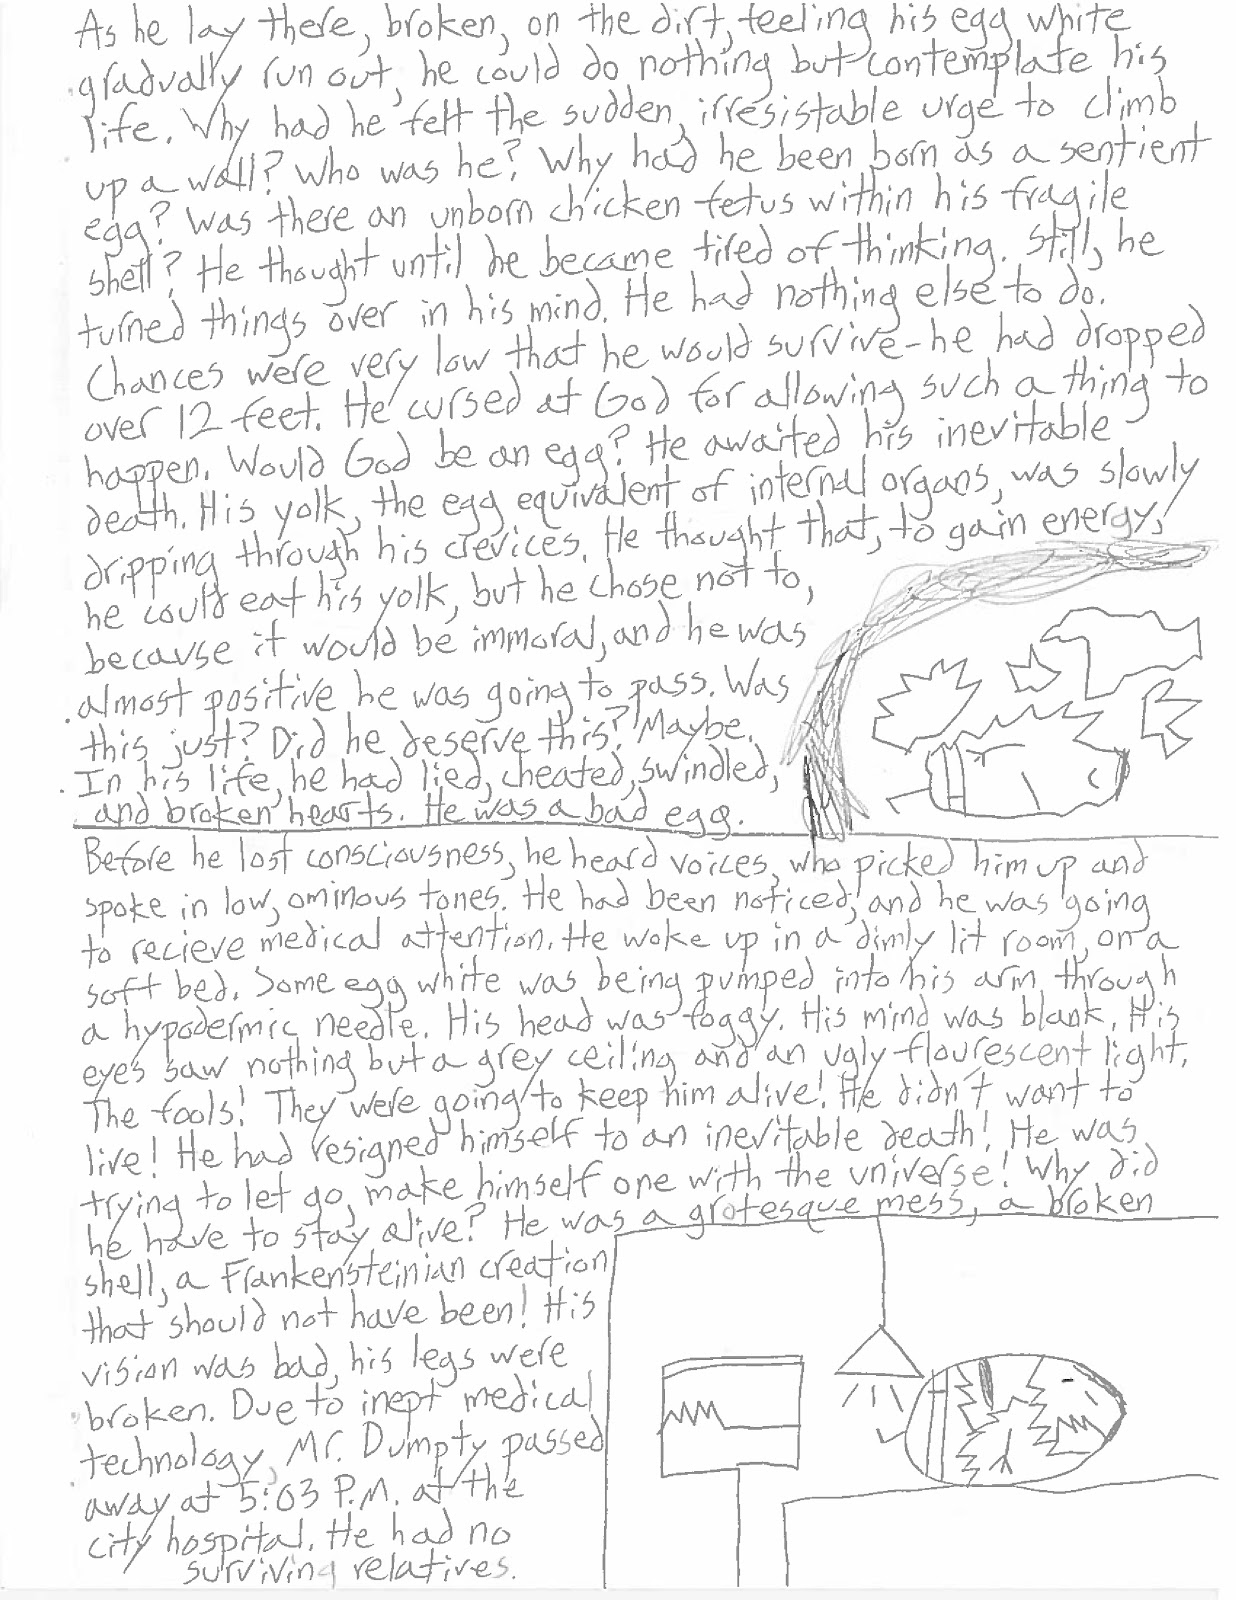 As he lay there, broken, on the dirt, feeling his egg white
gradually run out, he could do nothing but contemplate his
life. Why had he felt the sudden, irresistable urge to climb
up a wall? Who was he? Why had he been born as a sentient
egg? Was there an unborn chicken fetus within his fragile
shell? He thought until he became tired of thinking. Still, he
turned things over in his mind. He had nothing else to do.
Chances were very low that he would survive-he had dropped
over 12 feet. He cursed at God for allowing such a thing to
happen. Would God be an egg? He awaited his inevitable
death. His yolk, the egg equivalent of internal organs, was slowly
dripping through his crevices. He thought that, to gain energy,
he could eat his yolk, but he chose not to,
because it would be immoral, and he was
almost positive he was going to pass. Was
this just? Did he deserve this? Maybe.
In his life, he had lied, cheated, swindled,
and broken hearts. He was a bad egg.
Before he lost consciousness, he heard voices, who picked him up and
spoke in low, ominous tones. He had been noticed, and he was going
to recieve medical attention. He woke up in a dimly lit room, on a
soft bed. Some egg white was being pumped into his arm through
a hypodermic needle. His head was foggy. His mind was blank. His
eyes saw nothing but a grey ceiling and an ugly flourescent light.
The fools! They were going to keep him alive! He didn't want to
live! He had resigned himself to an inevitable death! He was
trying to let go, make himself one with the universe! Why did
he have to stay alive? He was a grotesque mess, a broken
shell, a Frankensteinian creation
that should not have been! His
vision was bad, his legs were
broken. Due to inept medical
technology, Mr. Dumpty passed
away at 5:03 P.M. at the
city hospital. He had no
surviving relatives.